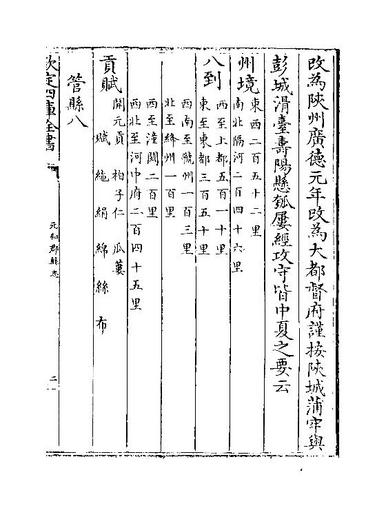 改為陜州廣德元年改為大都督府謹按陜城蒲牢與
彭城滑臺壽陽懸瓠屢經攻守皆中夏之要云
州境
東西二百五十二里
南北隔河二百四十六里
八到
西至上都五百一十里
東至東都三百五十里
西南至虢州一百三里
北至絳州一百里
西至潼關二百里
西北至河中府二百四十五里
貢賦
開元貢 柏子仁 瓜蔞
賦 絁 絹 綿 絲 布
管縣八
欽定四庫全書
元和郡縣志
二